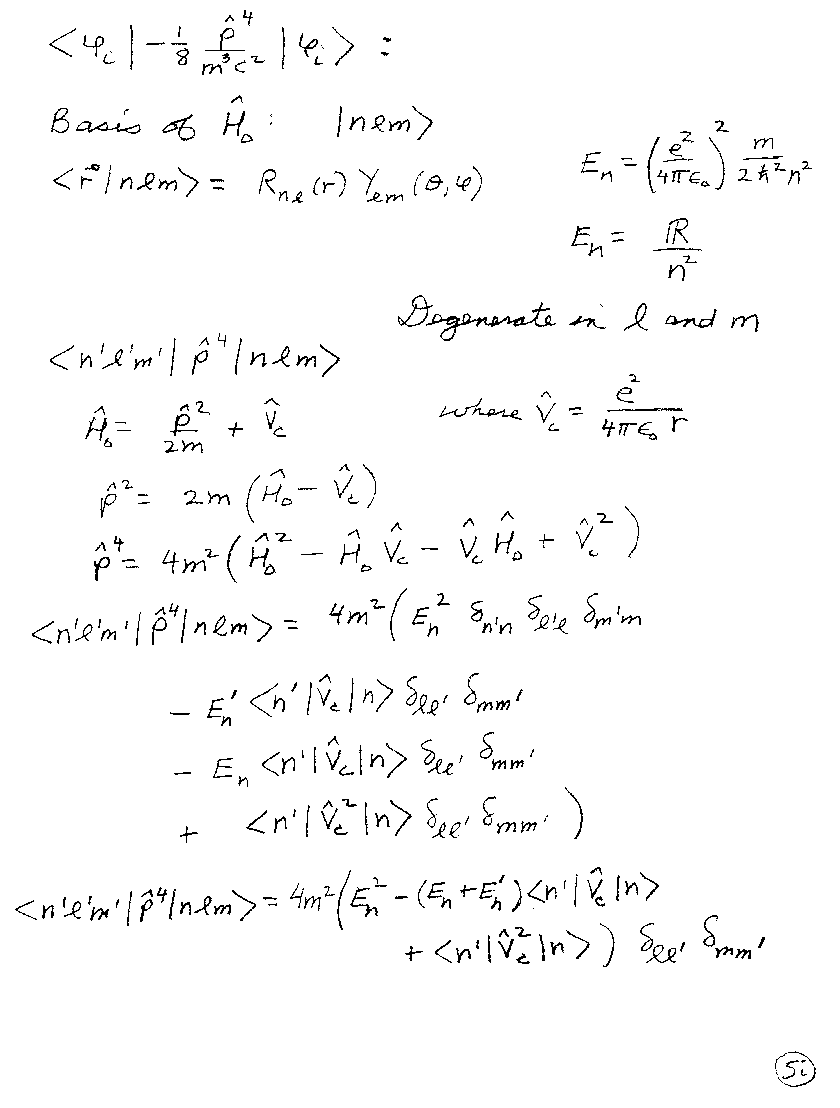 <φ_i| -1/8 p̂⁴/(m³c²) |φ_i> :
Basis of Ĥ₀ : |nℓm>
<r⃗|nℓm> = R_nℓ(r) Y_ℓm(θ,φ)
E_n = (e²/(4πε₀))² m/(2ħ²n²)
E_n = ℝ/n²
Degenerate in ℓ and m
<n'ℓ'm'| p̂⁴ |nℓm>
Ĥ₀ = p̂²/2m + V̂_c where V̂_c = e²/(4πε₀ r)
p̂² = 2m (Ĥ₀ - V̂_c)
p̂⁴ = 4m² (Ĥ₀² - Ĥ₀ V̂_c - V̂_c Ĥ₀ + V̂_c²)
<n'ℓ'm'|p̂⁴|nℓm> = 4m² (E_n² δ_n'n δ_ℓ'ℓ δ_m'm
- E_n' <n'|V̂_c|n> δ_ℓℓ' δ_mm'
- E_n <n'|V̂_c|n> δ_ℓℓ' δ_mm'
+ <n'|V̂_c²|n> δ_ℓℓ' δ_mm' )
<n'ℓ'm'|p̂⁴|nℓm> = 4m² (E_n² - (E_n + E_n') <n'|V̂_c|n>
+ <n'|V̂_c²|n> ) δ_ℓℓ' δ_mm'
5i